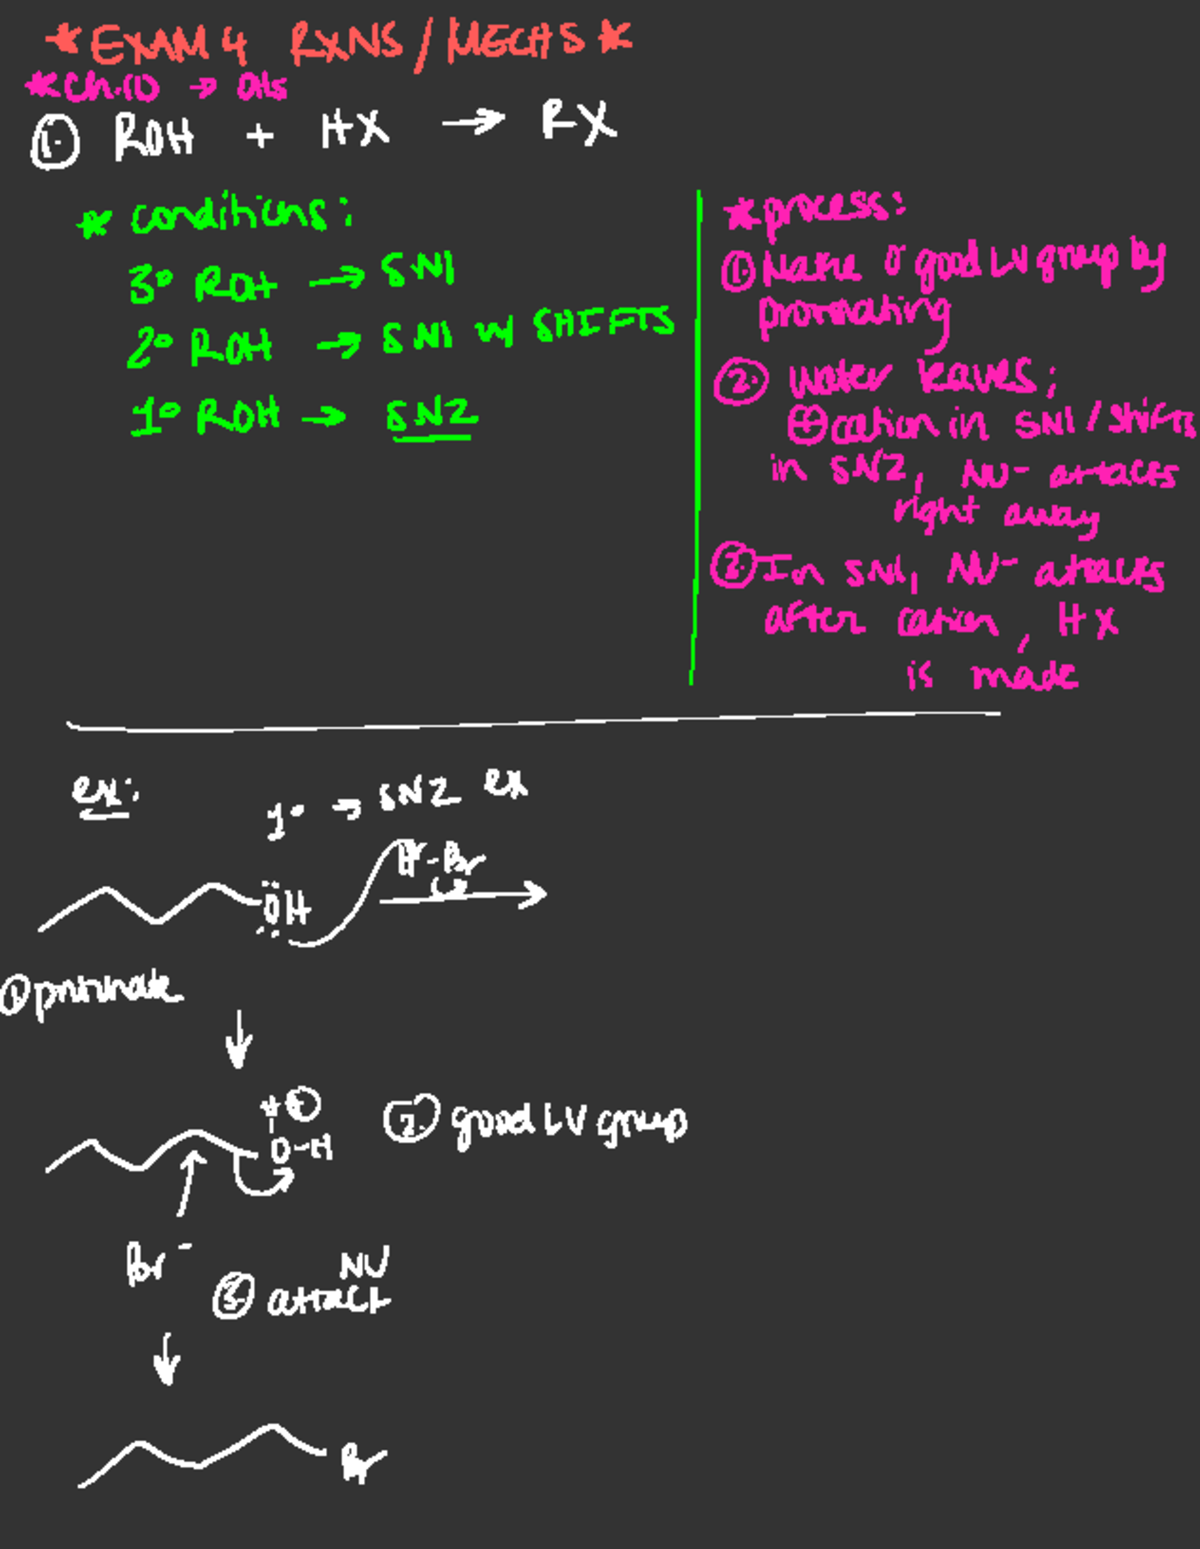 *EXAM 4 RXNS/MECHS*
*Ch.10 → OHs
1. ROH + HX → RX
* conditions:
3° ROH → SN1
2° ROH → SN1 w/ SHIFTS
1° ROH → SN2
*process:
1. Make a good LV group by
protonating
2. water leaves;
⊕cation in SN1/shifts
in SN2, NU- attacks
right away
3. In SN1, NU- attacks
after cation, HX
is made
ex:
1° → SN2 ex
H-Br
ÖH
1 protonate
H ⊕
O-H
2. good LV group
Br-
NU
3 attack
Br